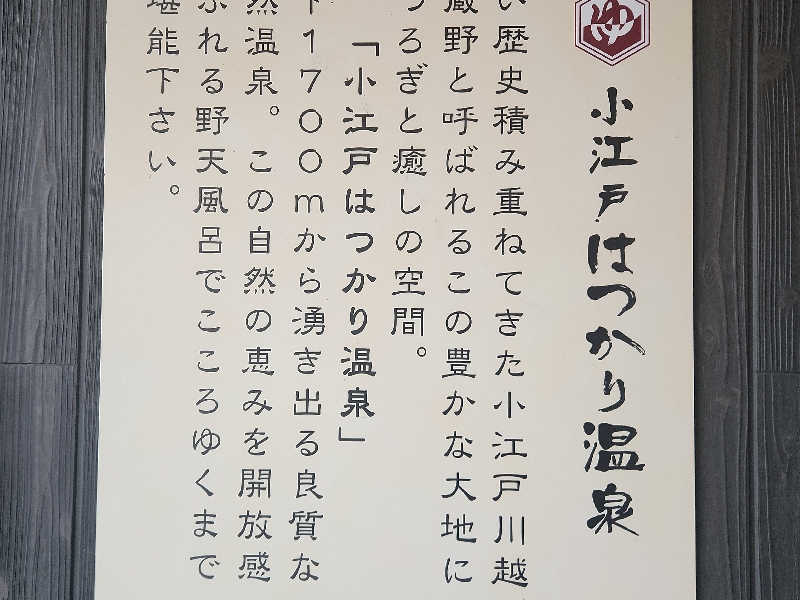 ゆ
小江戸はつかり温泉
い歴史積み重ねてきた小江戸川越
蔵野と呼ばれるこの豊かな大地に
つろぎと癒しの空間。
「小江戸はつかり温泉」
下1700mから湧き出る良質な
然温泉。この自然の恵みを開放感
ふれる野天風呂でこころゆくまで
堪能下さい。